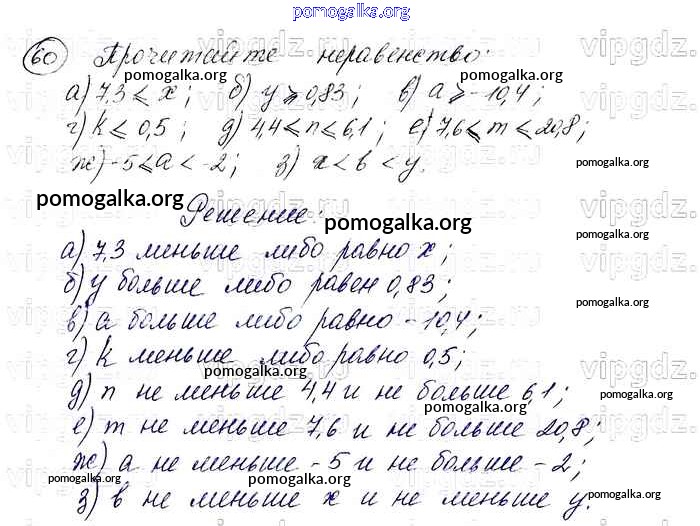 pomogalka.org
60 Прочитайте неравенство:
pomogalka.org pomogalka.org pomogalka.org
а) 7,3 ⩽ x; б) y ⩾ 0,83; в) a ⩾ -10,4;
г) k ⩽ 0,5; д) 4,4 ⩽ n ⩽ 6,1; е) 7,6 ⩽ m ⩽ 20,8;
pomogalka.org pomogalka.org pomogalka.org
ж) -5 ⩽ a < -2; з) x < в < y.
pomogalka.org
Решение:
pomogalka.org
а) 7,3 меньше либо равно x;
б) y больше либо равен 0,83;
pomogalka.org
в) a больше либо равно -10,4;
г) k меньше либо равно 0,5;
pomogalka.org
д) n не меньше 4,4 и не больше 6,1;
pomogalka.org pomogalka.org
е) m не меньше 7,6 и не больше 20,8;
ж) a не меньше -5 и не больше -2;
pomogalka.org pomogalka.org
з) в не меньше x и не меньше y.
pomogalka.org
vipgdz.ru